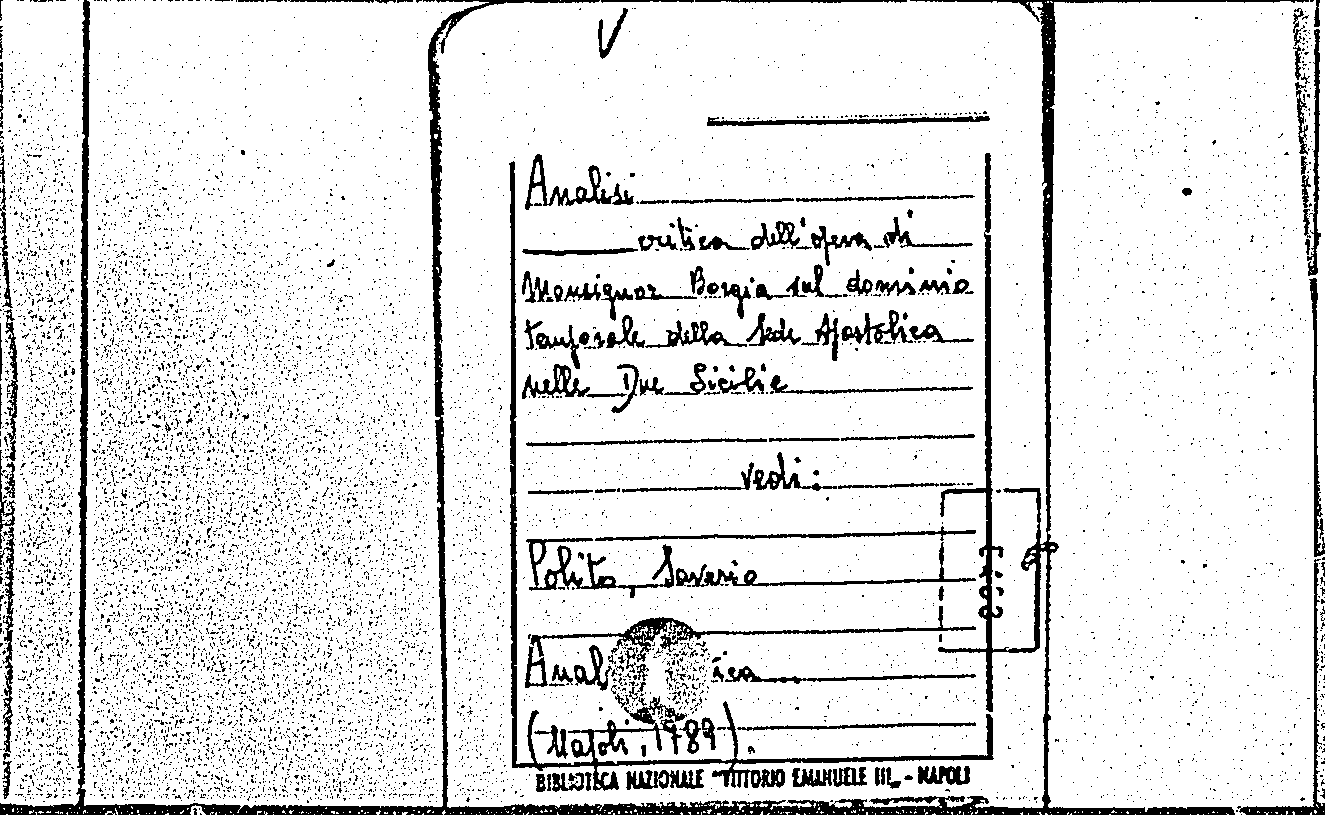 Analisi
critica dell'opera di
Monsignor Borgia sul dominio
temporale della Sede Apostolica
nelle Due Sicilie
vedi:
Polito, Saverio
Anal ica...
(Napoli, 1789).
BIBLIOTECA NAZIONALE "VITTORIO EMANUELE III„ - NAPOLI